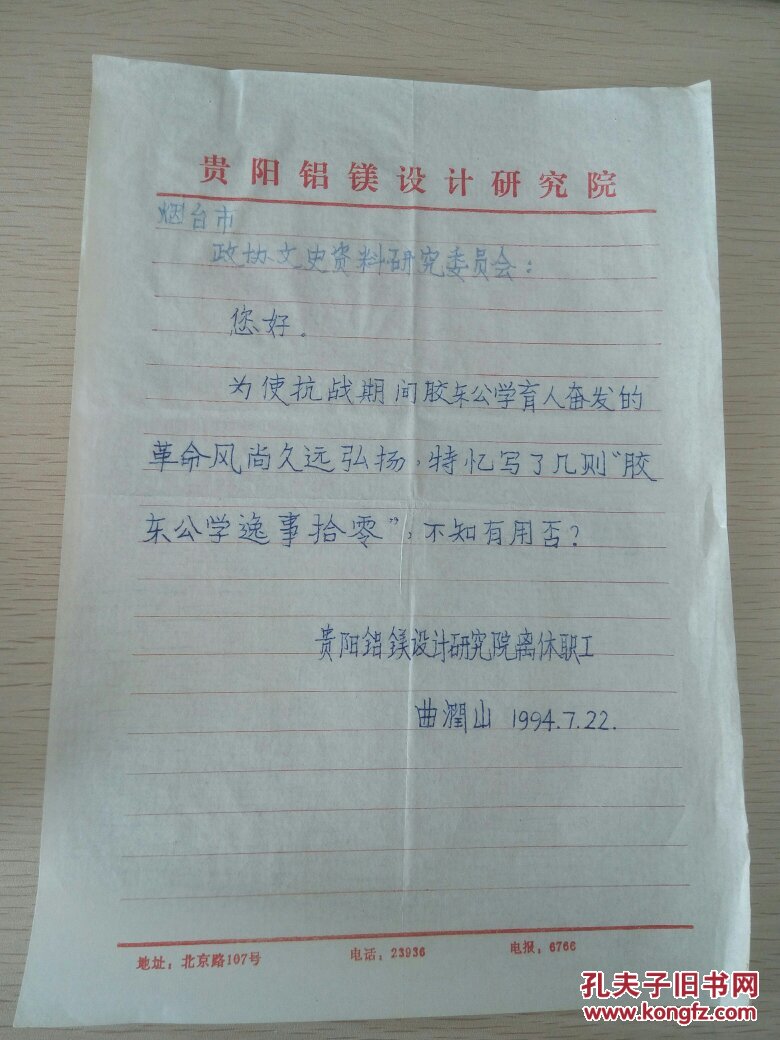 贵阳铝镁设计研究院
烟台市
政协文史资料研究委员会：
您好。
为使抗战期间胶东公学育人奋发的
革命风尚久远弘扬，特忆写了几则“胶
东公学逸事拾零”，不知有用否？
贵阳铝镁设计研究院离休职工
曲潤山 1994.7.22.
地址：北京路107号 电话：23936 电报：6766
孔夫子旧书网
www.kongfz.com